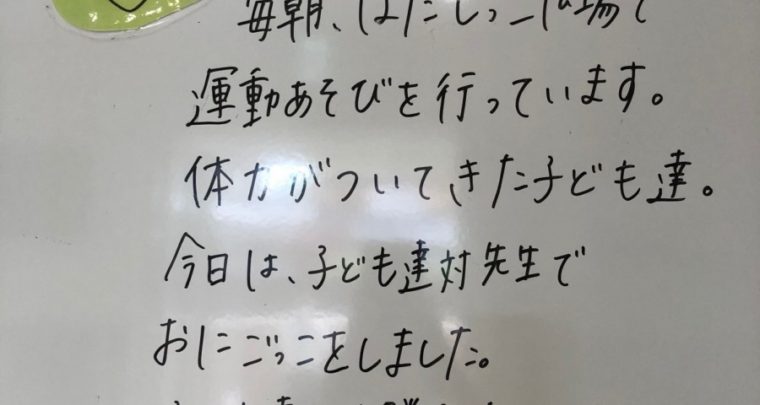 毎朝、はだしっこ広場で
運動あそびを行っています。
体力がついてきた子ども達。
今日は、子ども達対先生で
おにごっこをしました。